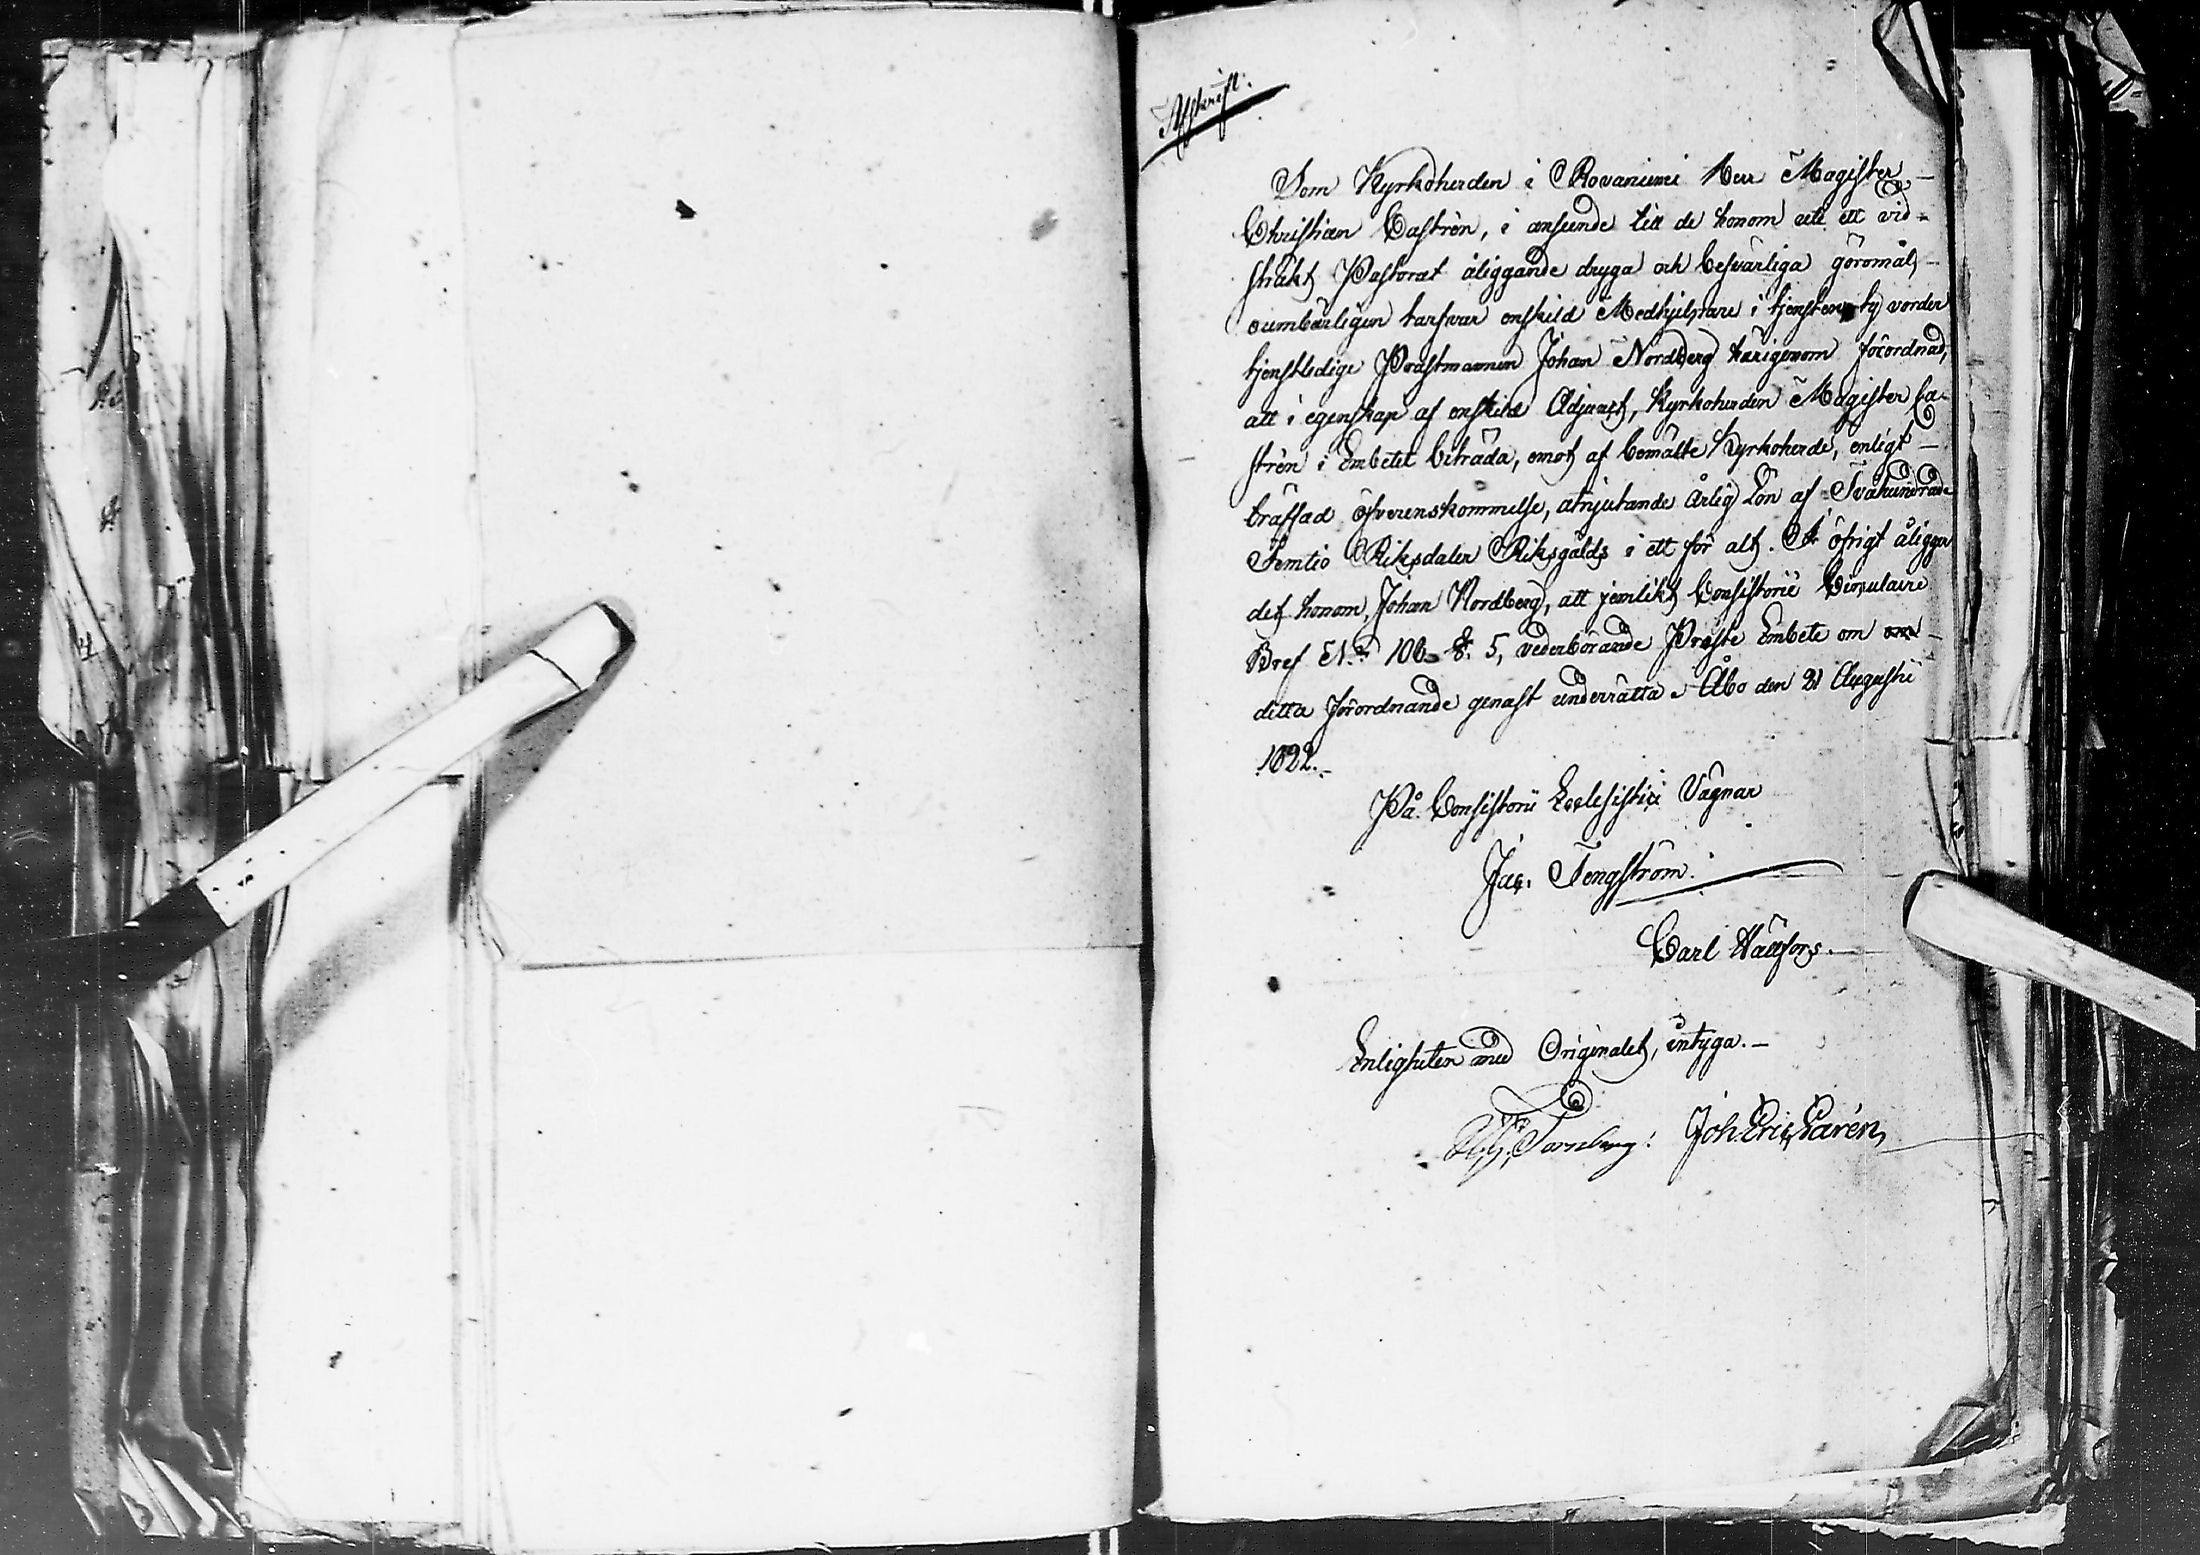 Afskrift.
Som Kyrkoherden i Rovaniemi Herr Magister
Christian Castrén, i anseende till de honom uti ett vid-
sträkt Pastorat åliggande dryga och besvärliga göromål,
oumbärligen tarfvar enskild Medhjelpare i tjensten, ty vorder
tjenstledige Prästmannen Johan Nordberg härigenom förordnad,
att i egenskap af enskild Adjunct, Kyrkoherden Magister Ca-
strén i Embetet biträda, emot af bemälte Kyrkoherde, enligt
träffad öfverenskommelse, åtnjutande årlig Lön af Tvåhundrade
Femtio Riksdaler Riksgälds i ett för alt. I öfrigt åligger
det honom, Johan Nordberg, att jemlikt Consistorii Circulaire
Bref N:o 106 §. 5, vederbörande Præste Embete om
detta förordnande genast underrätta. Åbo den 21 Augustii
1822.
På Consistorii Ecclesistici Vägnar
Jac. Tengström.
Carl Hällfors.
Enligheten med Originalet, intyga.
Tornberg: Joh Eric Carén